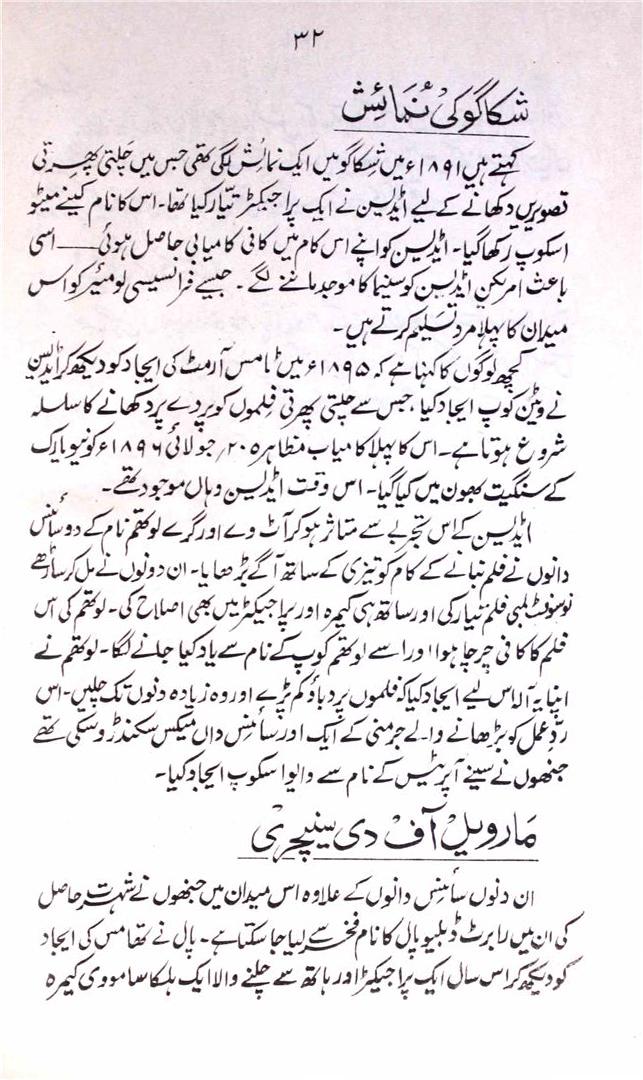 ۳۲
شکاگو کی نمائش
کہتے ہیں ۱۸۹۱ء میں شکاگو میں ایک نمائش لگی تھی جس میں چلتی پھرتی
تصویریں دکھانے کے لیے اڈیسن نے ایک پراجیکٹر تیار کیا تھا۔ اس کا نام کینے میٹو
اسکوپ رکھا گیا۔ اڈیسن کو اپنے اس کام میں کافی کامیابی حاصل ہوئی ــــ اسی
باعث امریکن اڈیسن کو سنیما کا موجد ماننے لگے۔ جیسے فرانسیسی لومئیر کو اس
میدان کا پہلا مرد تسلیم کرتے ہیں۔
کچھ لوگوں کا کہنا ہے کہ ۱۸۹۵ء میں ٹامس آرمٹ کی ایجاد کو دیکھ کر اڈیسن
نے وٹین کوپ ایجاد کیا، جس سے چلتی پھرتی فلموں کو پردے پر دکھانے کا سلسلہ
شروع ہوتا ہے۔ اس کا پہلا کامیاب مظاہرہ ۲۰؍جولائی ۱۸۹۶ء کو نیویارک
کے سنگیت بھون میں کیا گیا۔ اس وقت اڈیسن وہاں موجود تھے۔
اڈیسن کے اس تجربے سے متاثر ہو کر آٹ وے اور گرے لوکھتم نام کے دو سائنس
دانوں نے فلم بنانے کے کام کو تیزی کے ساتھ آگے بڑھایا۔ ان دونوں نے مل کر ساڑھے
نو سو فٹ لمبی فلم تیار کی اور ساتھ ہی کیمرہ اور پراجیکٹر میں بھی اصلاح کی۔ لوکھتم کی اس
فلم کا کافی چرچا ہوا اور اسے لوکھتم کوپ کے نام سے یاد کیا جانے لگا۔ لوکھتم نے
اپنا یہ آلہ اس لیے ایجاد کیا کہ فلموں پر دباؤ کم پڑے اور وہ زیادہ دنوں تک چلیں۔ اس
ردِّعمل کو بڑھانے والے جرمنی کے ایک اور سائنس داں میکس سکنڈروسکی تھے
جنھوں نے سینے آپریٹس کے نام سے والیوا سکوپ ایجاد کیا۔
مارویل آف دی سینچری
ان دنوں سائنس دانوں کے علاوہ اس میدان میں جنھوں نے شہرت حاصل
کی ان میں رابرٹ ڈبلیو پال کا نام فخر سے لیا جا سکتا ہے۔ پال نے تھامس کی ایجاد
کو دیکھ کر اس سال ایک پراجیکٹر اور ہاتھ سے چلنے والا ایک ہلکا سا مووی کیمرہ